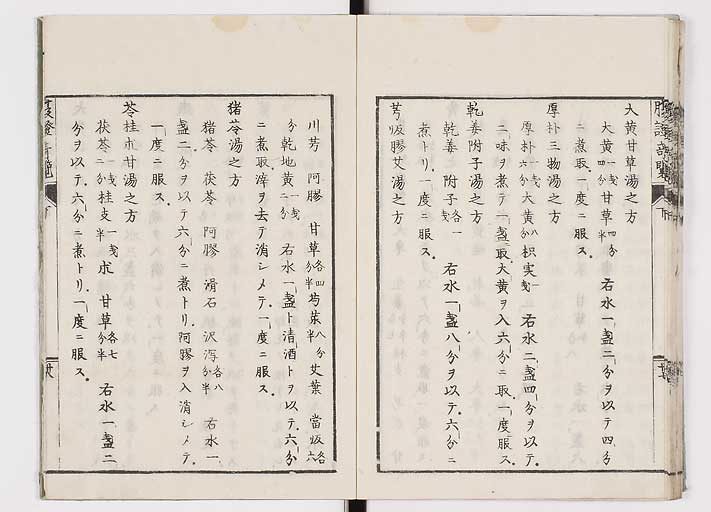 大黄甘草湯之方
大黄 一戔四分 甘草 四分半 右水一盞二分ヲ以テ四分
ニ煮取一度ニ服ス
厚朴三物湯之方
厚朴 一戔六分 大黄 八分 枳実 一戔 右水二盞四分ヲ以テ
二味ヲ煮テ一盞取大黄ヲ入六分ニ取一度服ス
乾姜附子湯之方
乾姜 附子 各一戔 右水一盞八分ヲ以テ六分ニ
煮トリ一度ニ服ス
芎皈膠艾湯之方
川芎 阿膠 甘草 各四分半 芍薬 八分 艾葉 當皈 各六
分 乾地黄 一戔二分 右水一盞ト清酒トヲ以テ六分
ニ煮取滓ヲ去テ消シメテ一度ニ服ス
猪苓湯之方
猪苓 茯苓 阿膠 滑石 沢瀉 各八分半 右水一
盞二分ヲ以テ六分ニ煮トリ阿膠ヲ入消シメテ
一度ニ服ス
苓桂朮甘湯之方
茯苓 一戔二分 桂支 一戔半 朮 甘草 各七分半 右水一盞二
分ヲ以テ六分ニ煮トリ一度ニ服ス